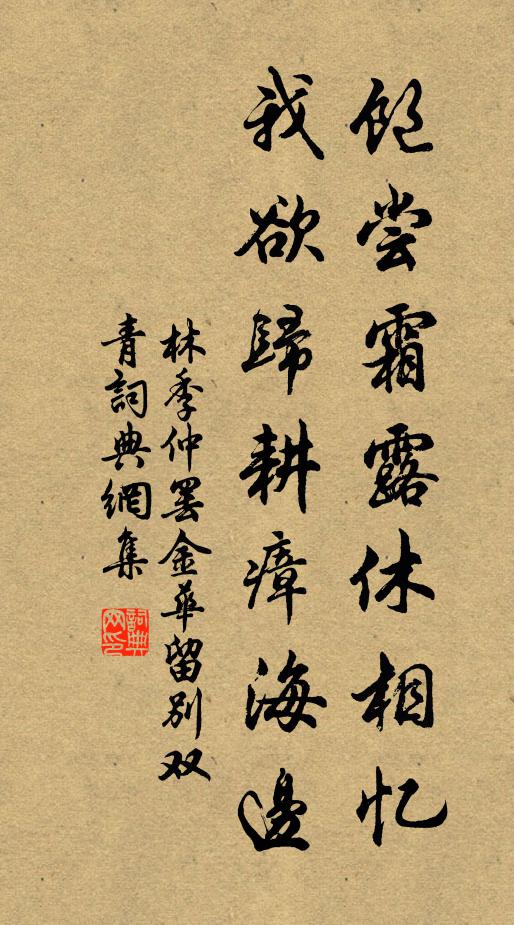 饱尝霜露休相忆
我欲歸耕瘴海邊
林季仲罢金华留别双
青詞典網集
詞典网印